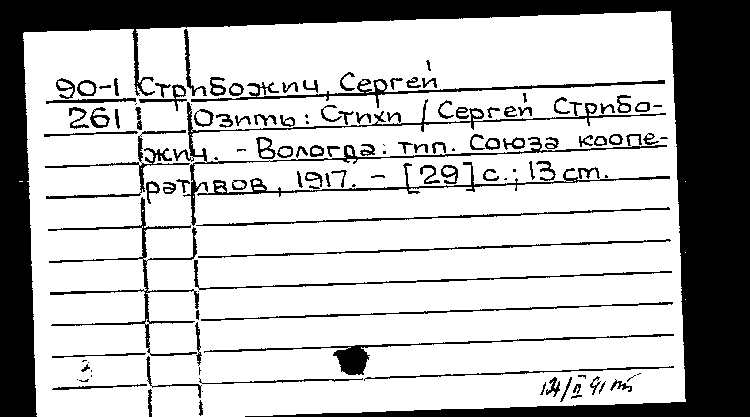 90-1 Стрибожич, Сергей
261 Озимь: Стихи / Сергей Стрибо-
жич. - Вологда: тип. Союза коопе-
ративов, 1917. - [29] с.; 13 cm.
3